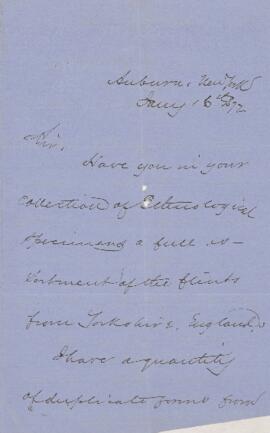 Auburn, New York
Jany 16th 72
Sir,
Have you in your
Collection of Ethnological
Specimens a full as-
sortment of the flints
from Yorkshire, England,
I have a quantity
of duplicate forms from